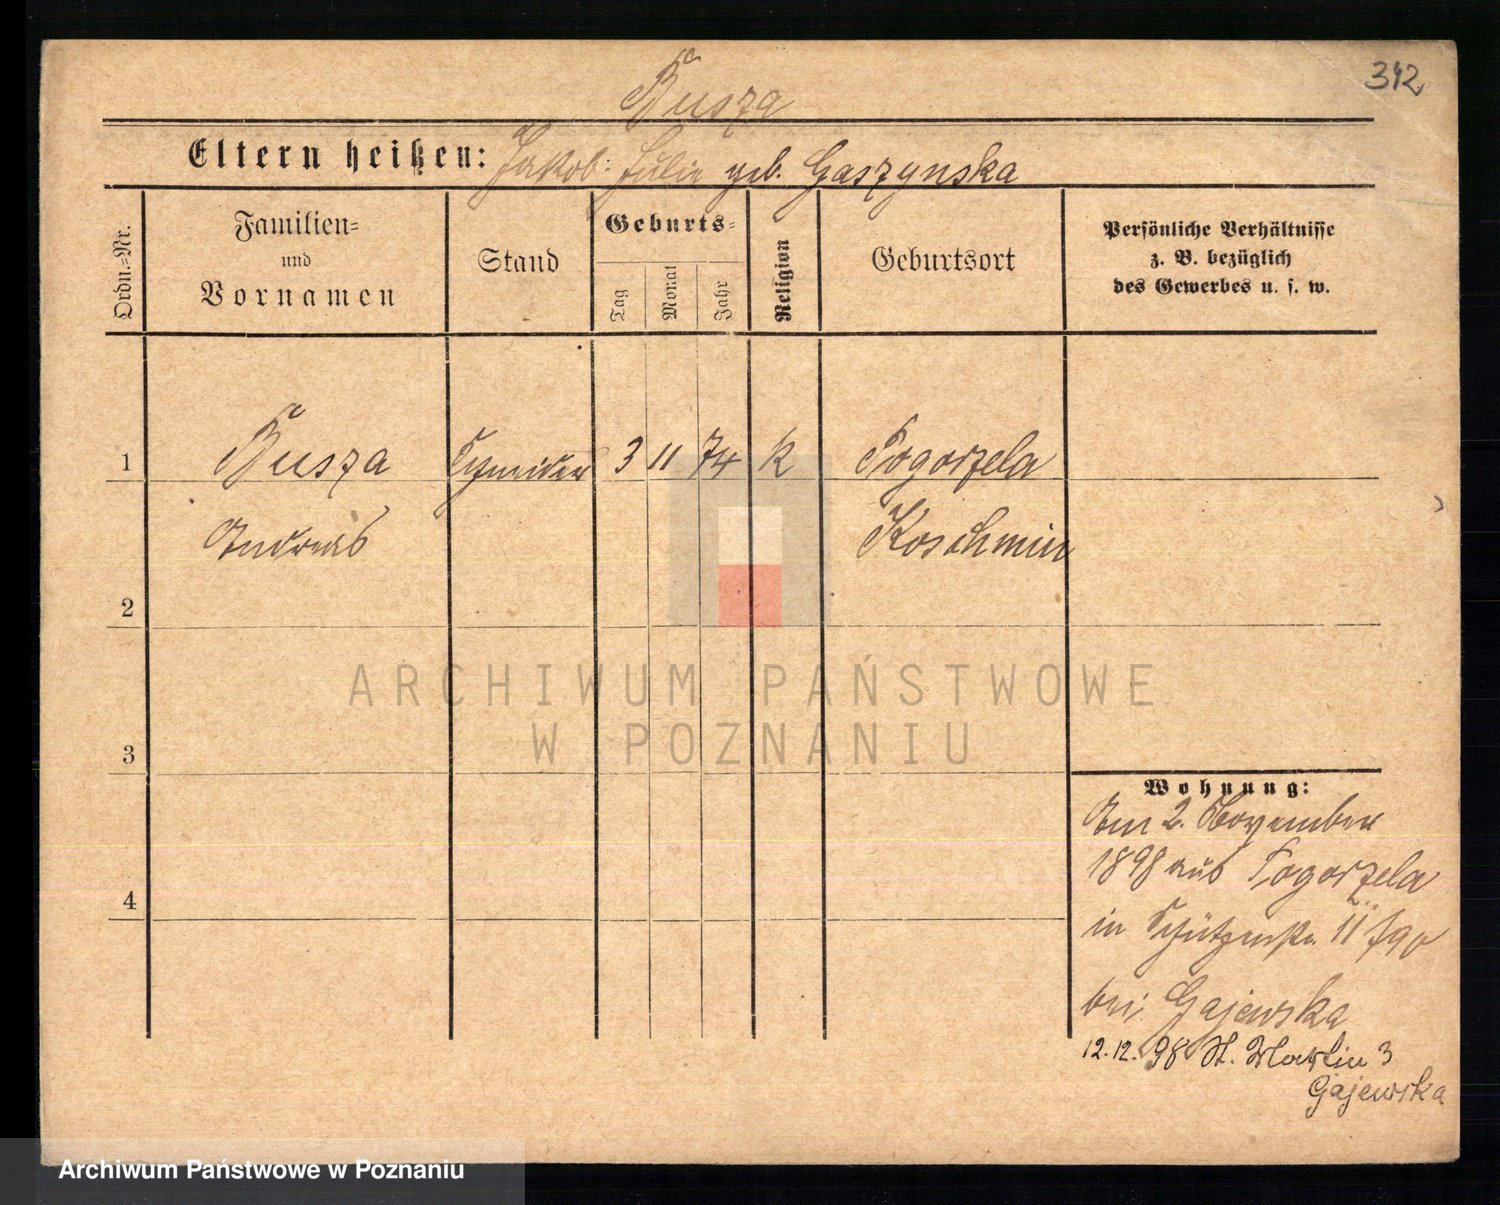 342
Busza
Eltern heißen: Jakob: Julie geb. Gaszynska
Ordn.-Nr.
Familien-
und
Vornamen
Stand
Geburts-
Tag
Monat
Jahr
Religion
Geburtsort
Persönliche Verhältnisse
z. B. bezüglich
des Gewerbes u. s. w.
1 Busza Schneider 3 11 74 K Pogorzela
Andreas Koschmin
2
3
4
ARCHIWUM PAŃSTWOWE
W POZNANIU
Wohnung:
Am 2. November
1898 aus Pogorzela
in Schützenstr. 11
bei Gajewska
12.12.98 St. Martin 3
Gajewska
Archiwum Państwowe w Poznaniu